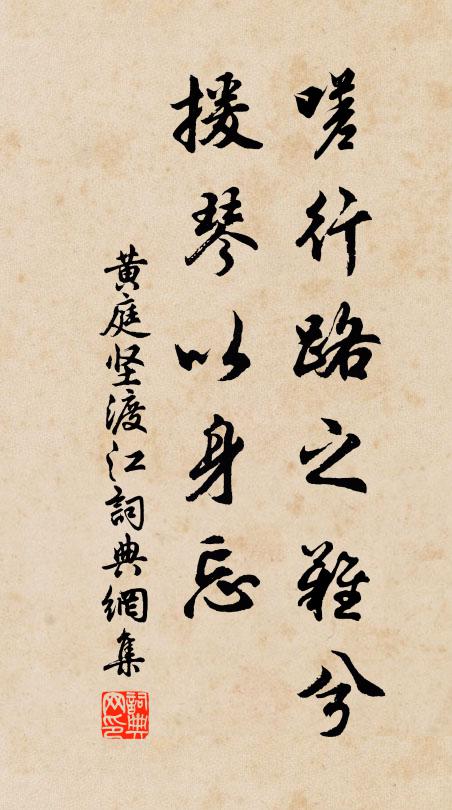 嗟行路之難兮
援琴以身忘
黄庭坚渡江詞典網集
詞典网印